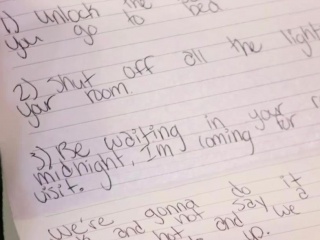 1) unlock the
you go to bed
2) Shut off all the light
your room.
3) Be waiting in your
midnight. I'm coming for
visit.
we're gonna do it
and not say
hot and we'd